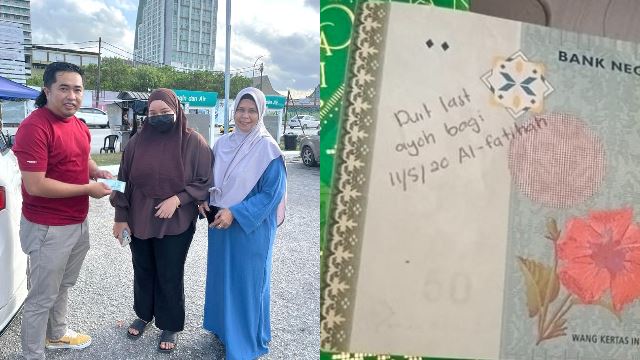 in dan Air
BANK NEG
Duit last
ayah bagi
11/5/20 Al-fatihah
50
WANG KERTAS IN